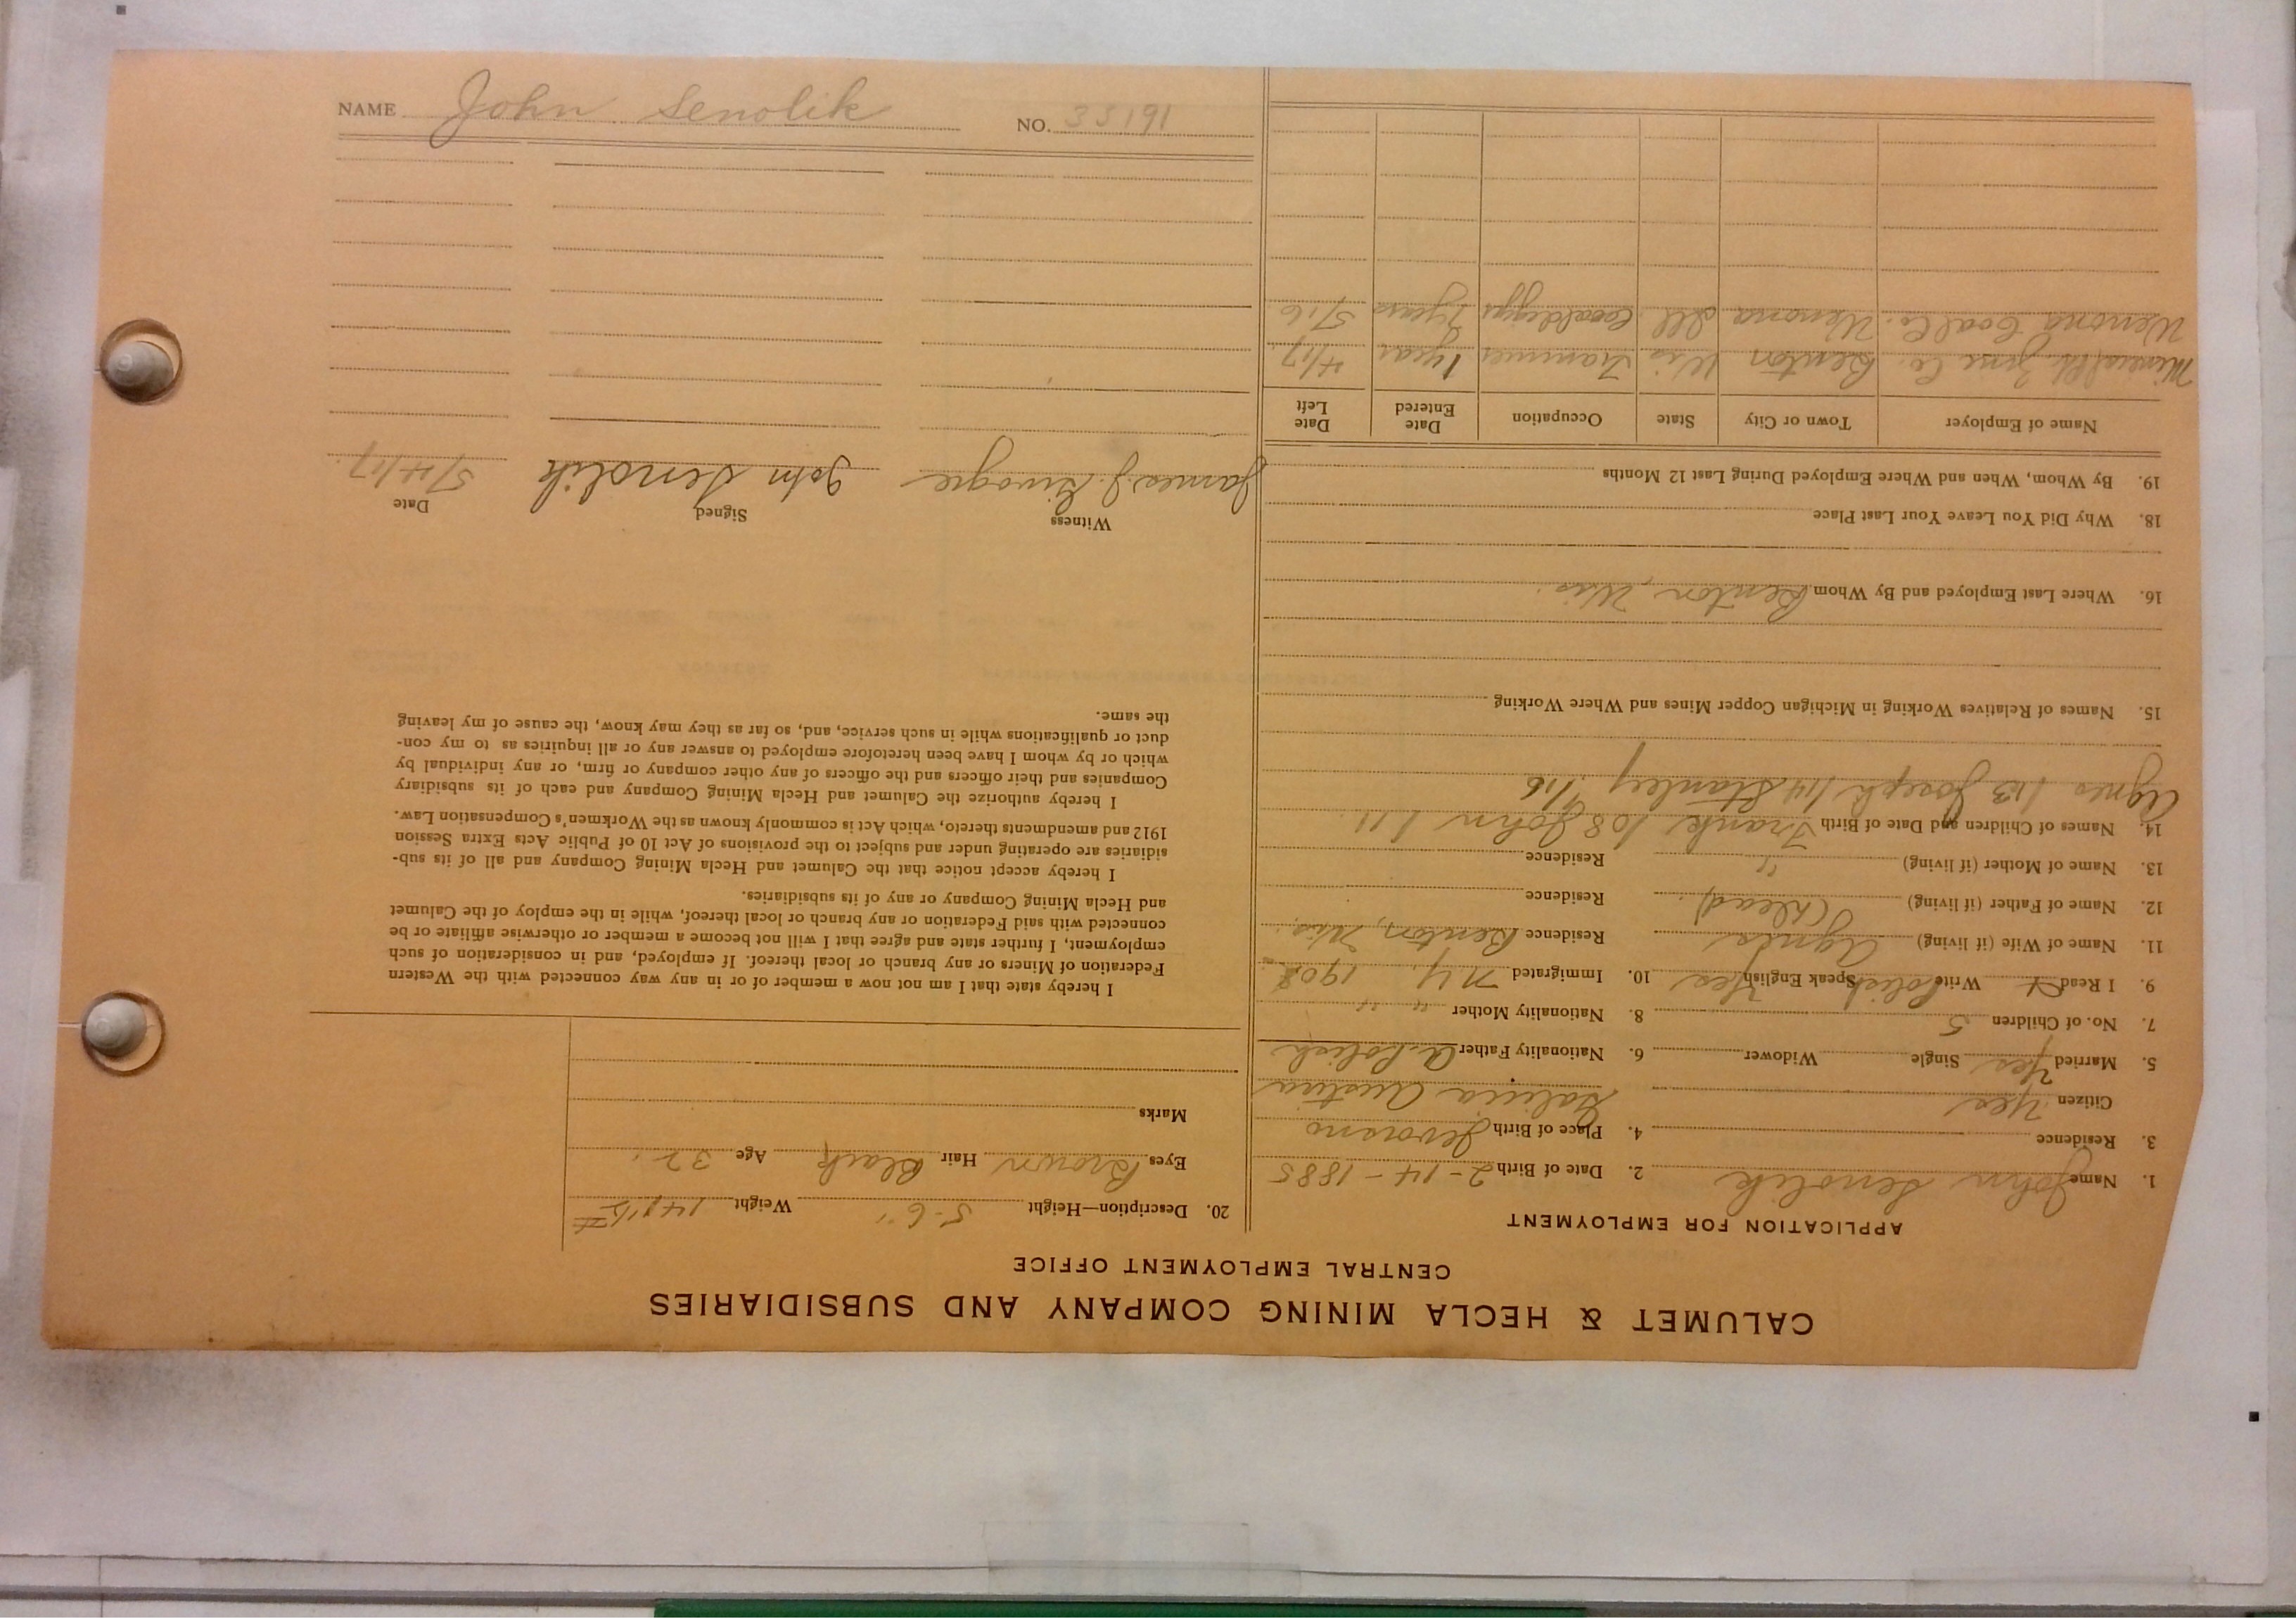 NAME John Senolik NO. 35191
CALUMET & HECLA MINING COMPANY AND SUBSIDIARIES
CENTRAL EMPLOYMENT OFFICE
APPLICATION FOR EMPLOYMENT
1. Name John Senolik 2. Date of Birth 2-14-1885
3. Residence 4. Place of Birth
Citizen Yes Galicia Austria
5. Married Yes Single Widower 6. Nationality Father A. Polish
7. No. of Children 5 8. Nationality Mother " "
9. I Read & Write Polish Speak English Yes 10. Immigrated N.Y. 1908
11. Name of Wife (if living) Agnes Residence Benton, Wis.
12. Name of Father (if living) (Dead) Residence
13. Name of Mother (if living) " Residence
14. Names of Children and Date of Birth Frank 1/08 John 1/11
Agnes 1/13 Joseph 1/14 Stanley 9/16
15. Names of Relatives Working in Michigan Copper Mines and Where Working
16. Where Last Employed and By Whom Benton, Wis.
18. Why Did You Leave Your Last Place
19. By Whom, When and Where Employed During Last 12 Months
Name of Employer Town or City State Occupation Date Entered Date Left
Mineral Pt. Zinc Co. Benton Wis Trammer 1 year 4/17
Wenona Coal Co. Wenona Ill Coaldigger years 5/16
20. Description—Height 5-6" Weight 141½ #
Eyes Brown Hair Black Age 32
Marks
I hereby state that I am not now a member of or in any way connected with the Western
Federation of Miners or any branch or local thereof. If employed, and in consideration of such
employment, I further state and agree that I will not become a member or otherwise affiliate or be
connected with said Federation or any branch or local thereof, while in the employ of the Calumet
and Hecla Mining Company or any of its subsidiaries.
I hereby accept notice that the Calumet and Hecla Mining Company and all of its sub-
sidiaries are operating under and subject to the provisions of Act 10 of Public Acts Extra Session
1912 and amendments thereto, which Act is commonly known as the Workmen's Compensation Law.
I hereby authorize the Calumet and Hecla Mining Company and each of its subsidiary
Companies and their officers and the officers of any other company or firm, or any individual by
which or by whom I have been heretofore employed to answer any or all inquiries as to my con-
duct or qualifications while in such service, and, so far as they may know, the cause of my leaving
the same.
Witness Signed Date
James J. John Senolik 5/14/17